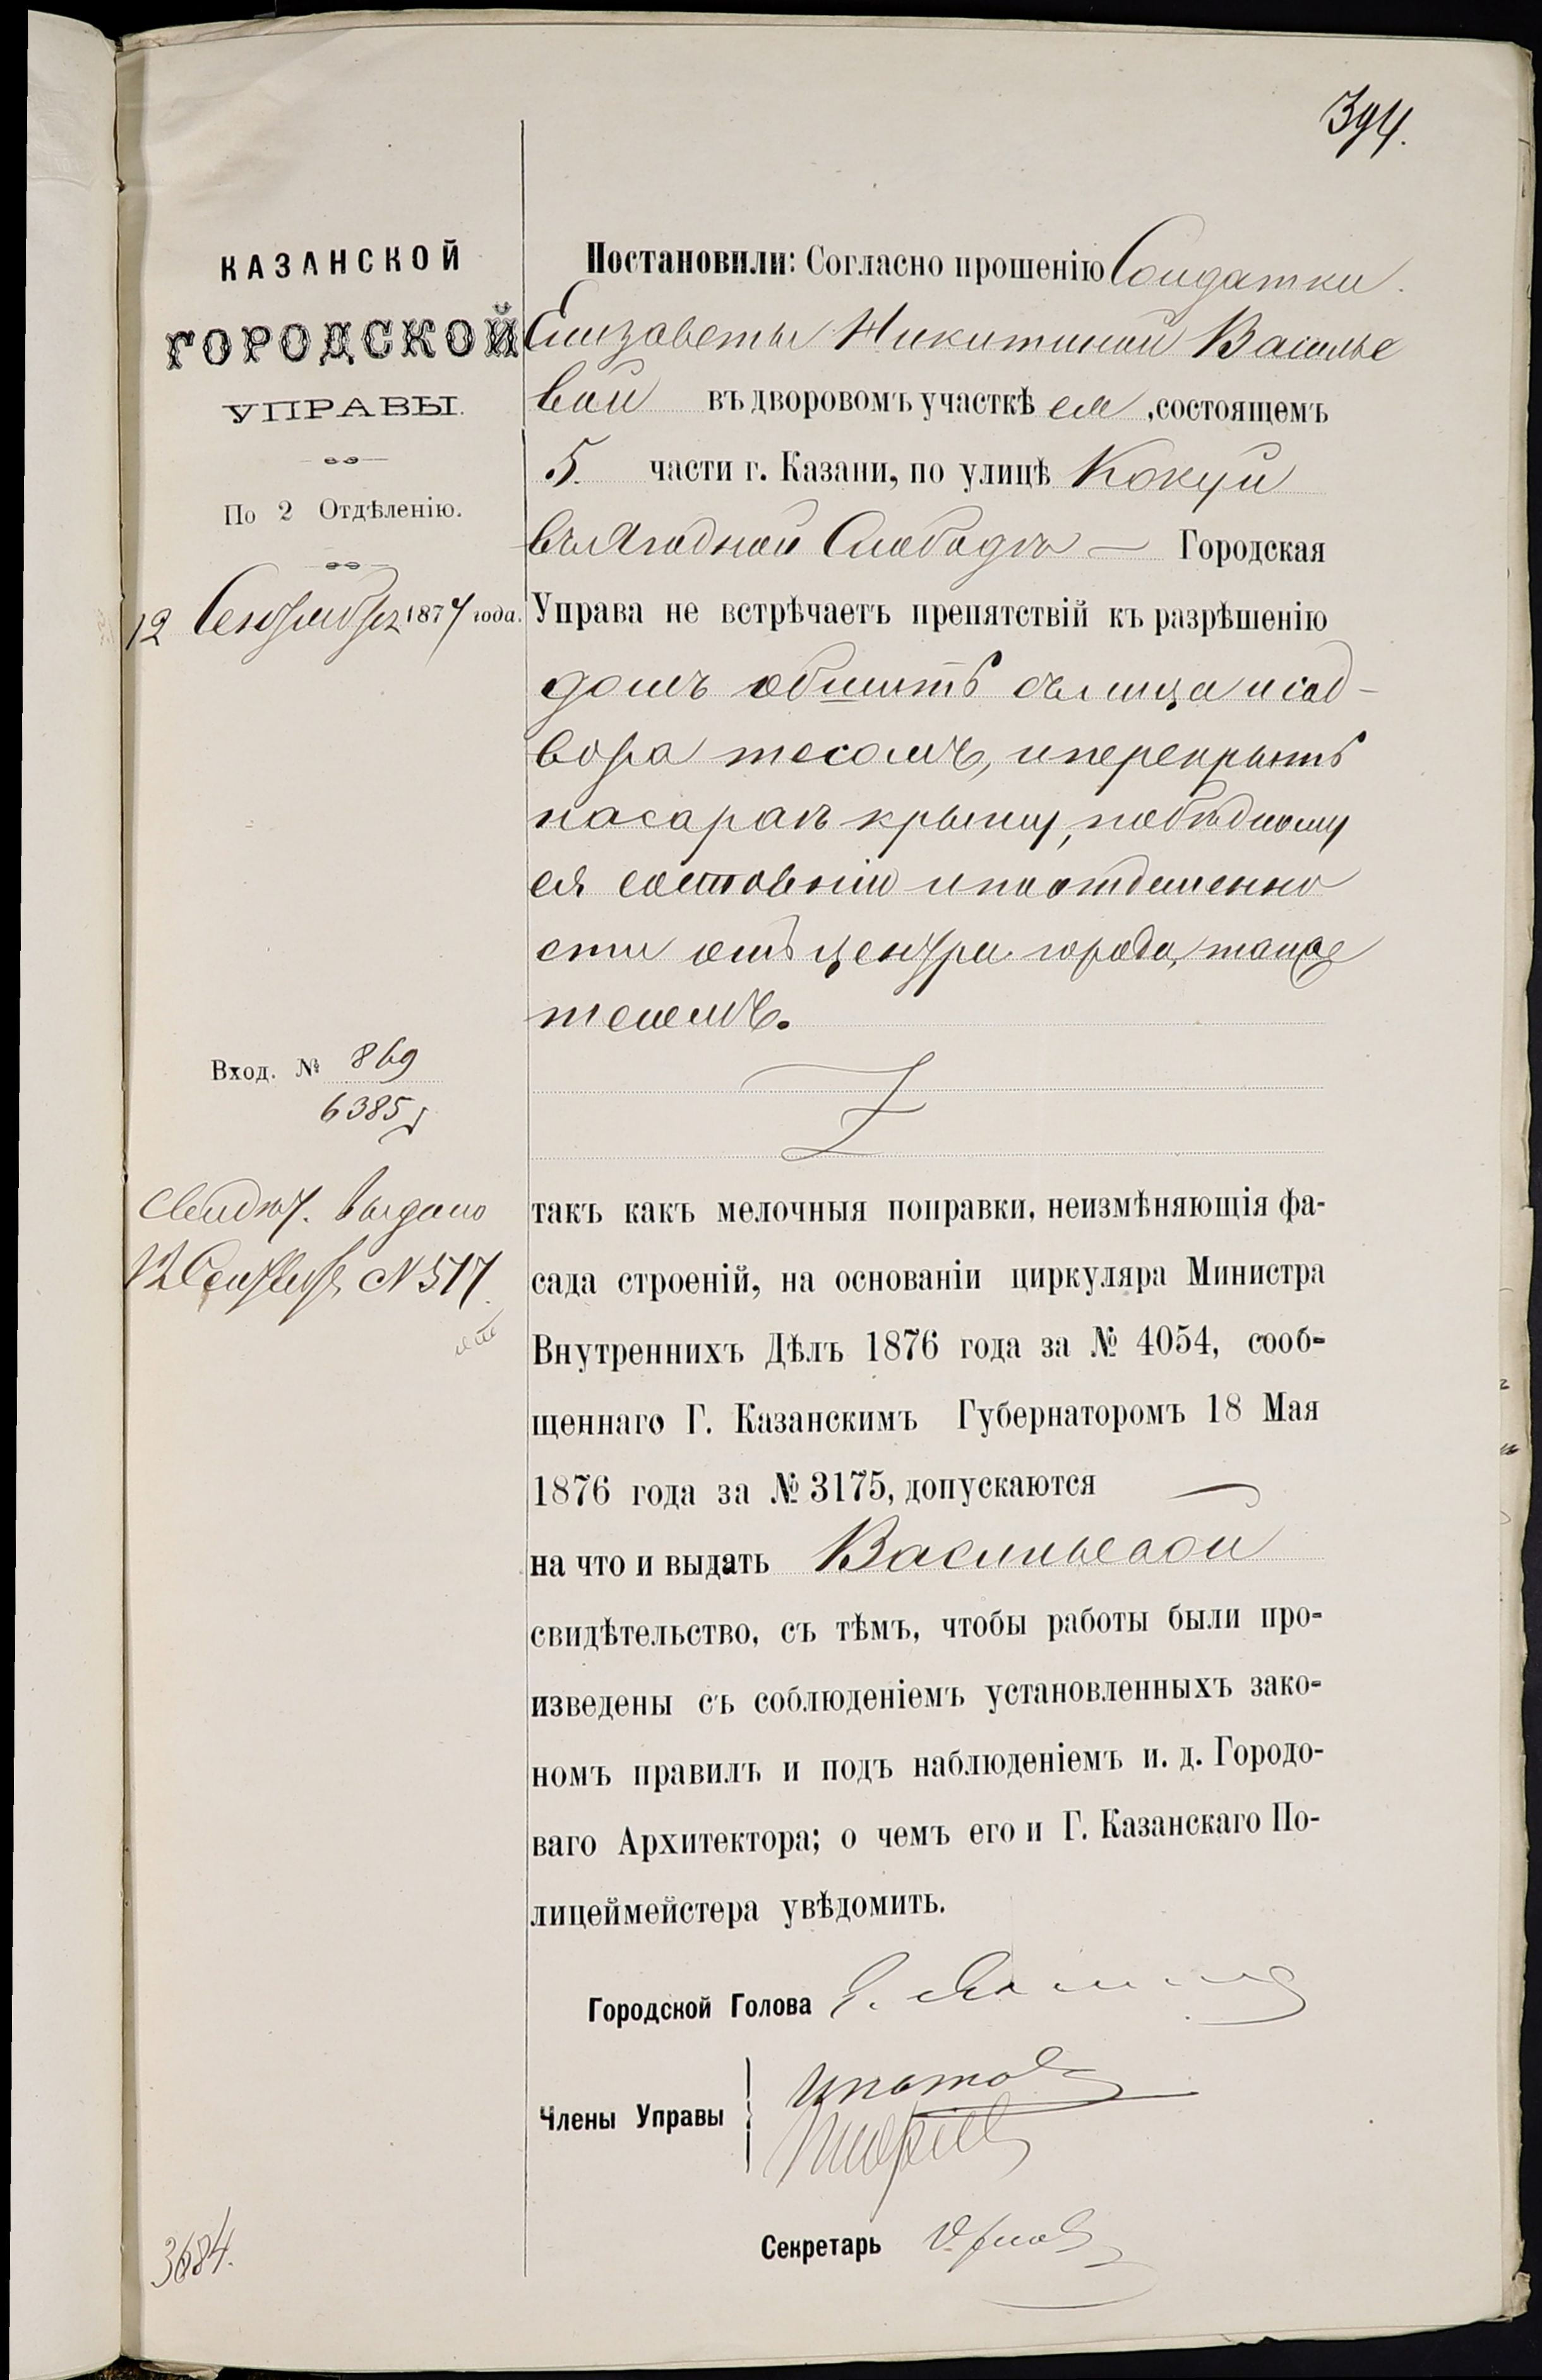 394.
КАЗАНСКОЙ
ГОРОДСКОЙ
УПРАВЫ.
По 2 Отдѣленію.
12 Сентября 1877 года.
Вход. № 869
6385
Свидѣт. выдано
12 Сентября № 517
3684.
Постановили: Согласно прошенію Солдатки
Елизаветы Никитиной Василье
вой въ дворовомъ участкѣ ея, состоящемъ
5. части г. Казани, по улицѣ Кокуй
въ Ягодной Слободѣ — Городская
Управа не встрѣчаетъ препятствій къ разрѣшенію
домъ обшить съ лица и сод-
вора тесомъ, и перекрыть
на сараѣ крышу, по бѣдному
ея состоянію и по отдаленно
сти отъ центра города, также
тесомъ.
такъ какъ мелочныя поправки, неизмѣняющія фа-
сада строеній, на основаніи циркуляра Министра
Внутреннихъ Дѣлъ 1876 года за № 4054, сооб-
щеннаго Г. Казанскимъ Губернаторомъ 18 Мая
1876 года за № 3175, допускаются —
на что и выдать Васильевой
свидѣтельство, съ тѣмъ, чтобы работы были про-
изведены съ соблюденіемъ установленныхъ зако-
номъ правилъ и подъ наблюденіемъ и. д. Городо-
ваго Архитектора; о чемъ его и Г. Казанскаго По-
лицеймейстера увѣдомить.
Городской Голова
Члены Управы Ипатов
Секретарь